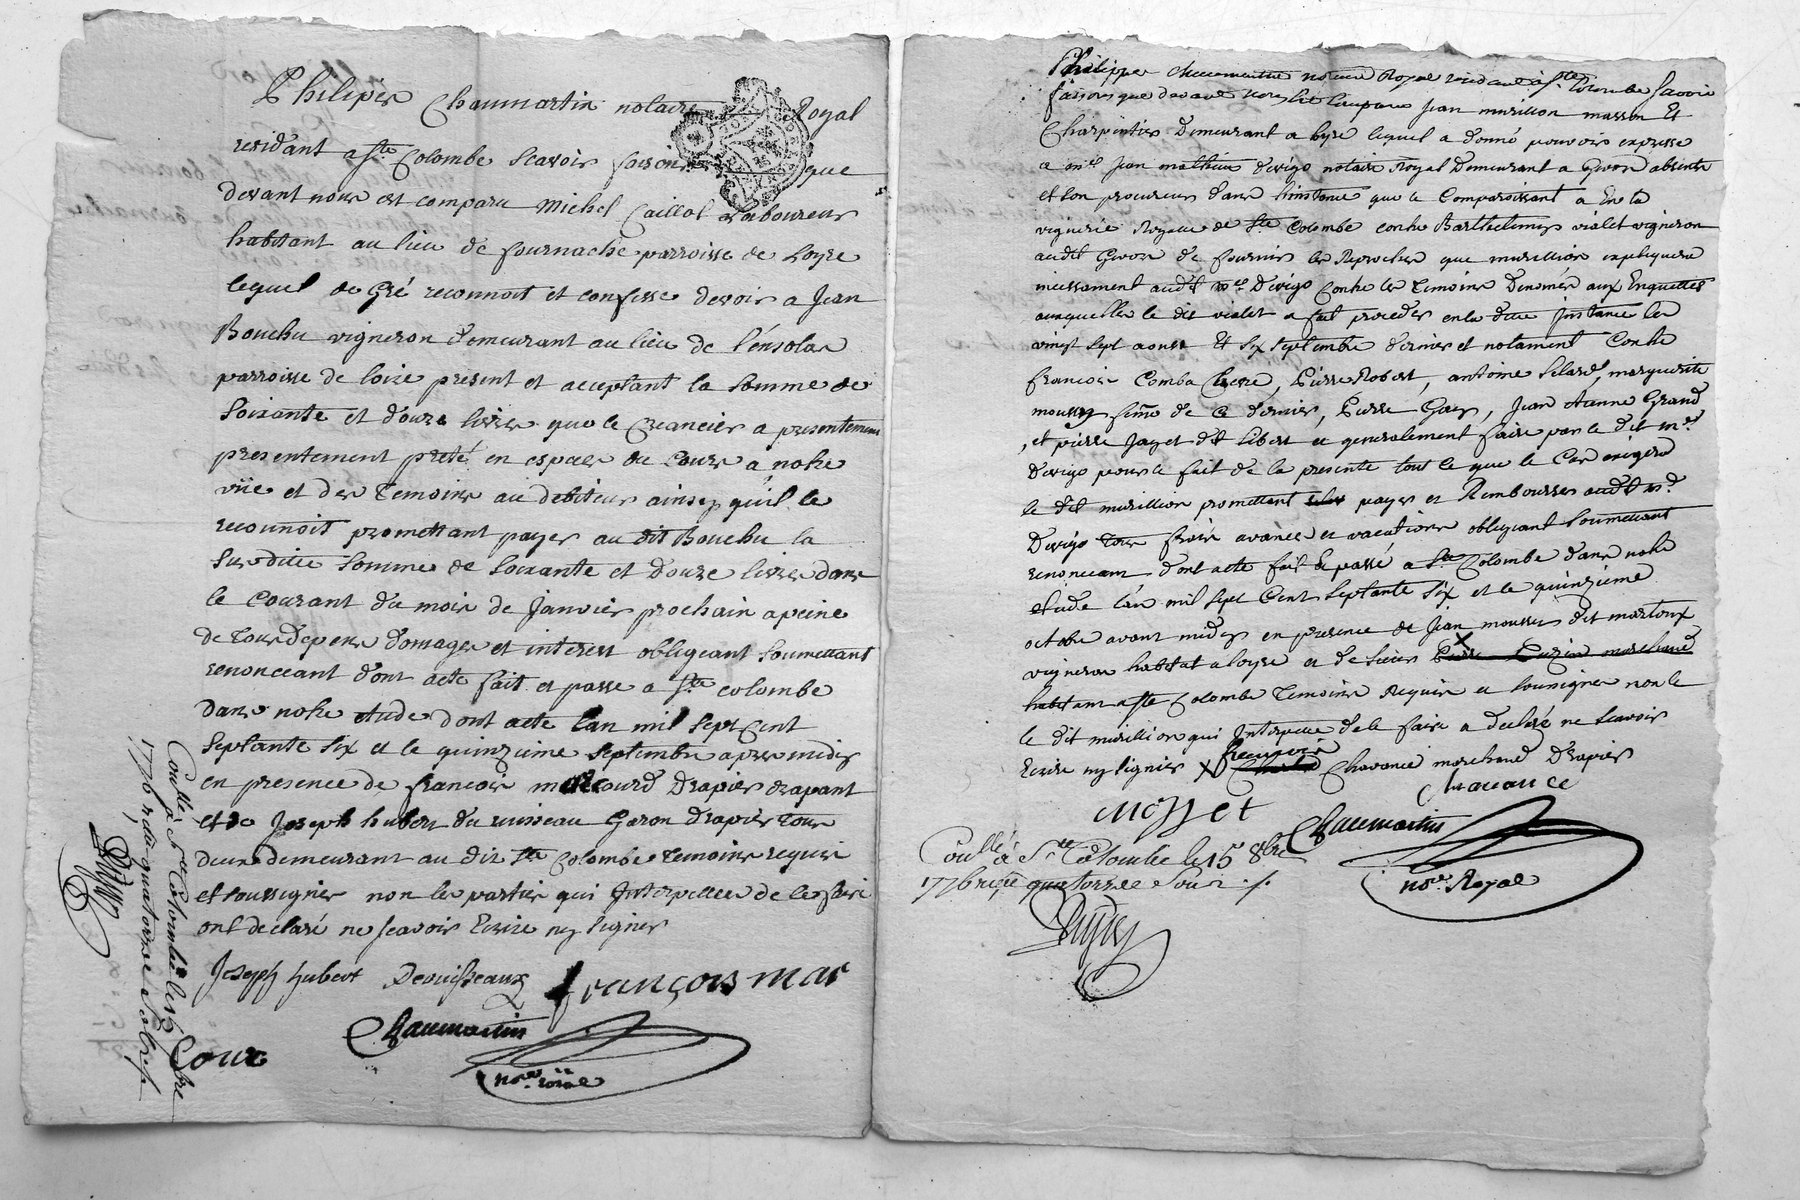 Philiper Chaumartin notaire Royal
residant a Ste Colombe scavoir faisons que
devant nous est comparu Michel Caillot Laboureur
habitant au lieu de fournache parroisse de Loyre
lequel de Gré reconnoit et confesse devoir a Jean
Bouchu vigneron demeurant au lieu de l'ensolas
parroisse de loire present et acceptant la somme de
soixante et douze livres que le Creancier a presentement
presentement preté en especes de Cours a notre
vüe et des temoins au debiteur ainsy qu'il le
reconnoit promettant payer au dit Bouchu la
susditte somme de soixante et douze livres dans
le courant du mois de janvier prochain a peine
de tous depens domages et interest obligeant soumettant
renonceant dont acte fait et passé a Ste colombe
dans notre etude dont acte lan mil sept cent
septante six et le quinzieme septembre apres midy
en presence de francois drapier drapant
et de Joseph hubert du ruisseau Garon drapier tous
deux demeurant au dit Ste Colombe temoins requis
et soussignes non les parties qui Interpellées de le faire
ont declaré ne scavoir Ecrire ny signer
Joseph hubert Deruisseaux françois mar
Chaumartin
nore roial
Coullé a Ste Colombe le 15 7bre
1776 reçu quatorze sols
Philippe Chaumartin notaire Royal residant a Ste Colombe savoir
faisons que devant nous est comparu Jean murillion masson Et
Charpentier Demeurant a loyre lequel a donné pouvoir expresse
a me Jean mathieu Dervigo notaire Royal Demeurant a Givors absent
et son procureur dans linstance que le Comparoissant a En la
viguerie Royalle de Ste Colombe contre Barthelemy violet vigneron
audit Givors de fournir les Reproches que murillion expliquera
incessament audit me Dervigo Contre les temoins Denomés aux Enquettes
auxquelles le dit violet a fait proceder en la ditte Instance les
vingt sept aoust Et six septembre dernier et notament Contre
francois Comba, Pierre Robert, antoine, marguerite
mousset feme de ce dernier, Pierre Gay, Jean etienne Grand
, et pierre Jayet dit libert et generalement faire par le dit me
Dervigo pour le fait de la presente tout ce que le Cas exigera
le dit murillion promettant payer et Rembourser audit me
Dervigo tous frais avances et vacations obligeant soumettant
renonceant dont acte fait et passé a Ste Colombe dans notre
etude l'an mil sept Cent septante six et le quinzieme
octobre avant midy en presence de Jean mousset dit martoux
vigneron habitat a loyre et de sieur marchand
habitant a Ste Colombe temoins requis et soussignes non le
le dit murillion qui Interpellé de le faire a declaré ne scavoir
Ecrire ny signer X francois Chavance marchand Drapier
Mosset Chavance
Chaumartin
nore Royal
Coullé a Ste Colombe le 15 8bre
1776 reçu quatorze sols